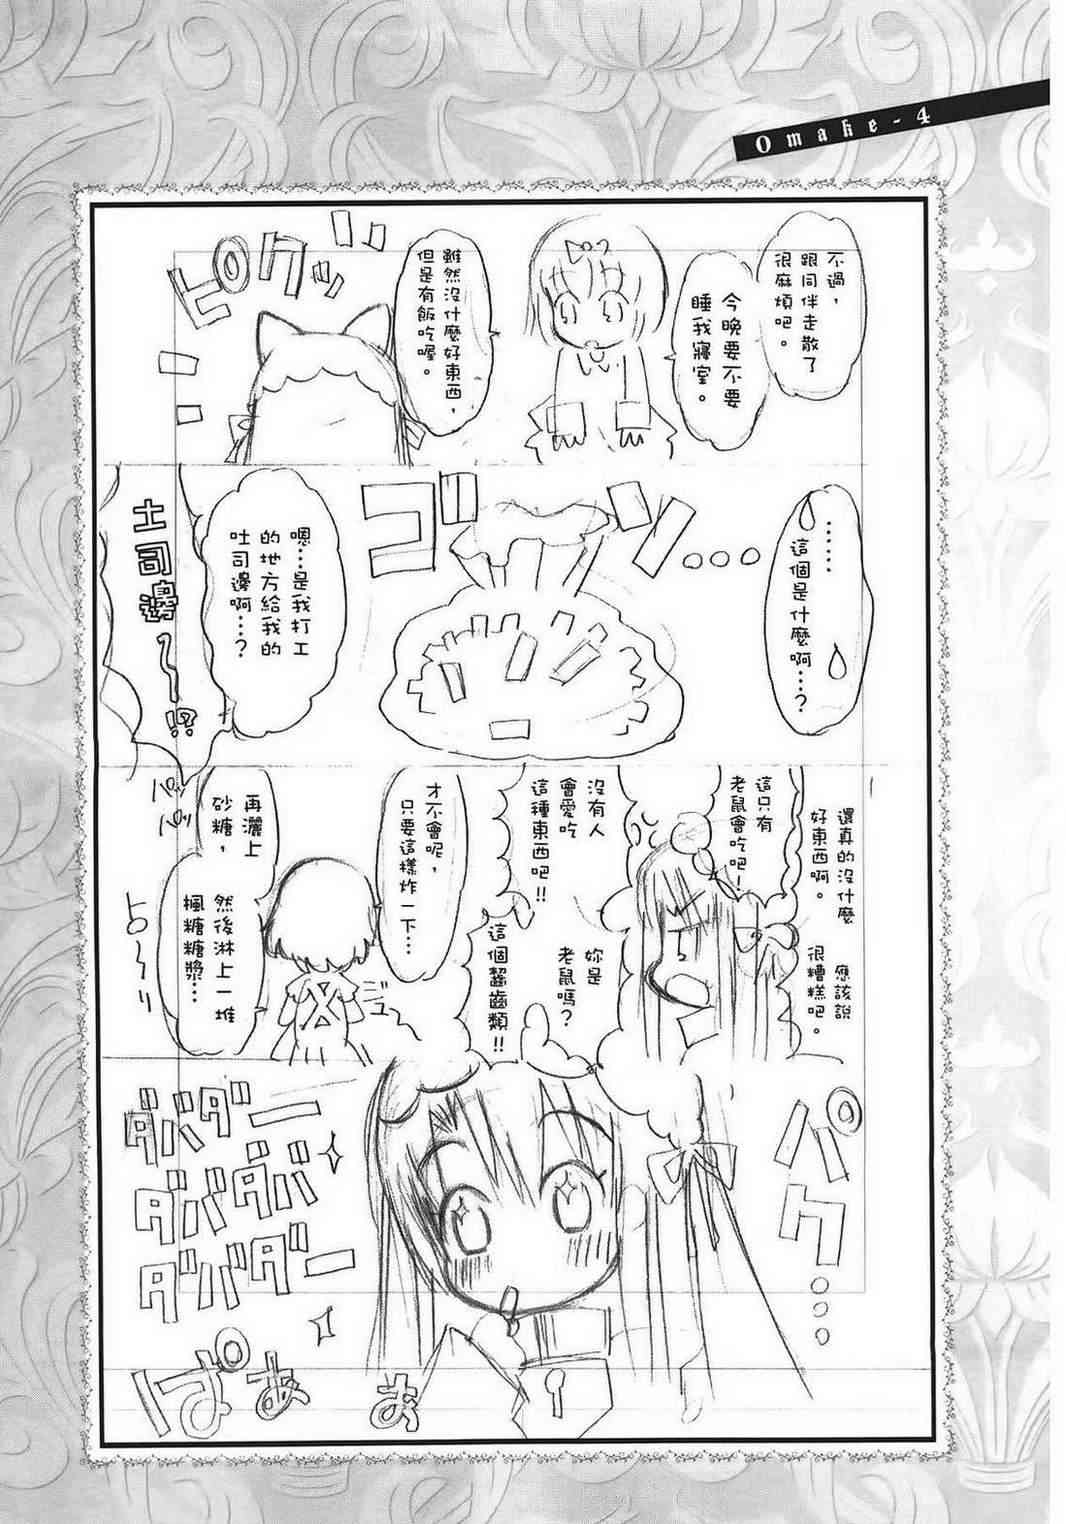 Omake-4
不過，
跟同伴走散了
很麻煩吧。
今晚要不要
睡我寢室。
雖然沒什麼好東西，
但是有飯吃喔。
ピクッ
……
這個是什麼啊…？
ゴソッ…
嗯…是我打工
的地方給我的
吐司邊啊…？
土司邊～!?
還真的沒什麼
好東西啊。
應該說
很糟糕吧。
這只有
老鼠會吃吧!
沒有人
會愛吃
這種東西吧!!
妳是
老鼠嗎？
這個齧齒類!!
才不會呢，
只要這樣炸一下…
ジュ
再灑上
砂糖，
パッ
パッ
然後淋上一堆
楓糖糖漿…
とろ～り
パク…
ダバダー
ダバダバ
ダバダー
ぱぁぁ